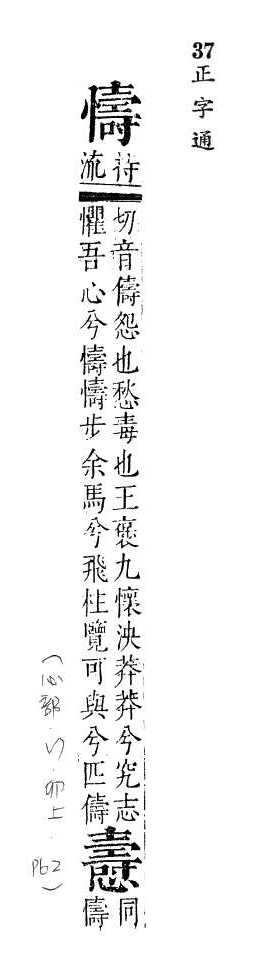 37正字通
懤
待流
切音儔怨也愁毒也王褒九懷泱莽莽兮究志
懼吾心兮懤懤步余馬兮飛柱覽可與兮匹儔
同懤
（心部 卯上 P62）